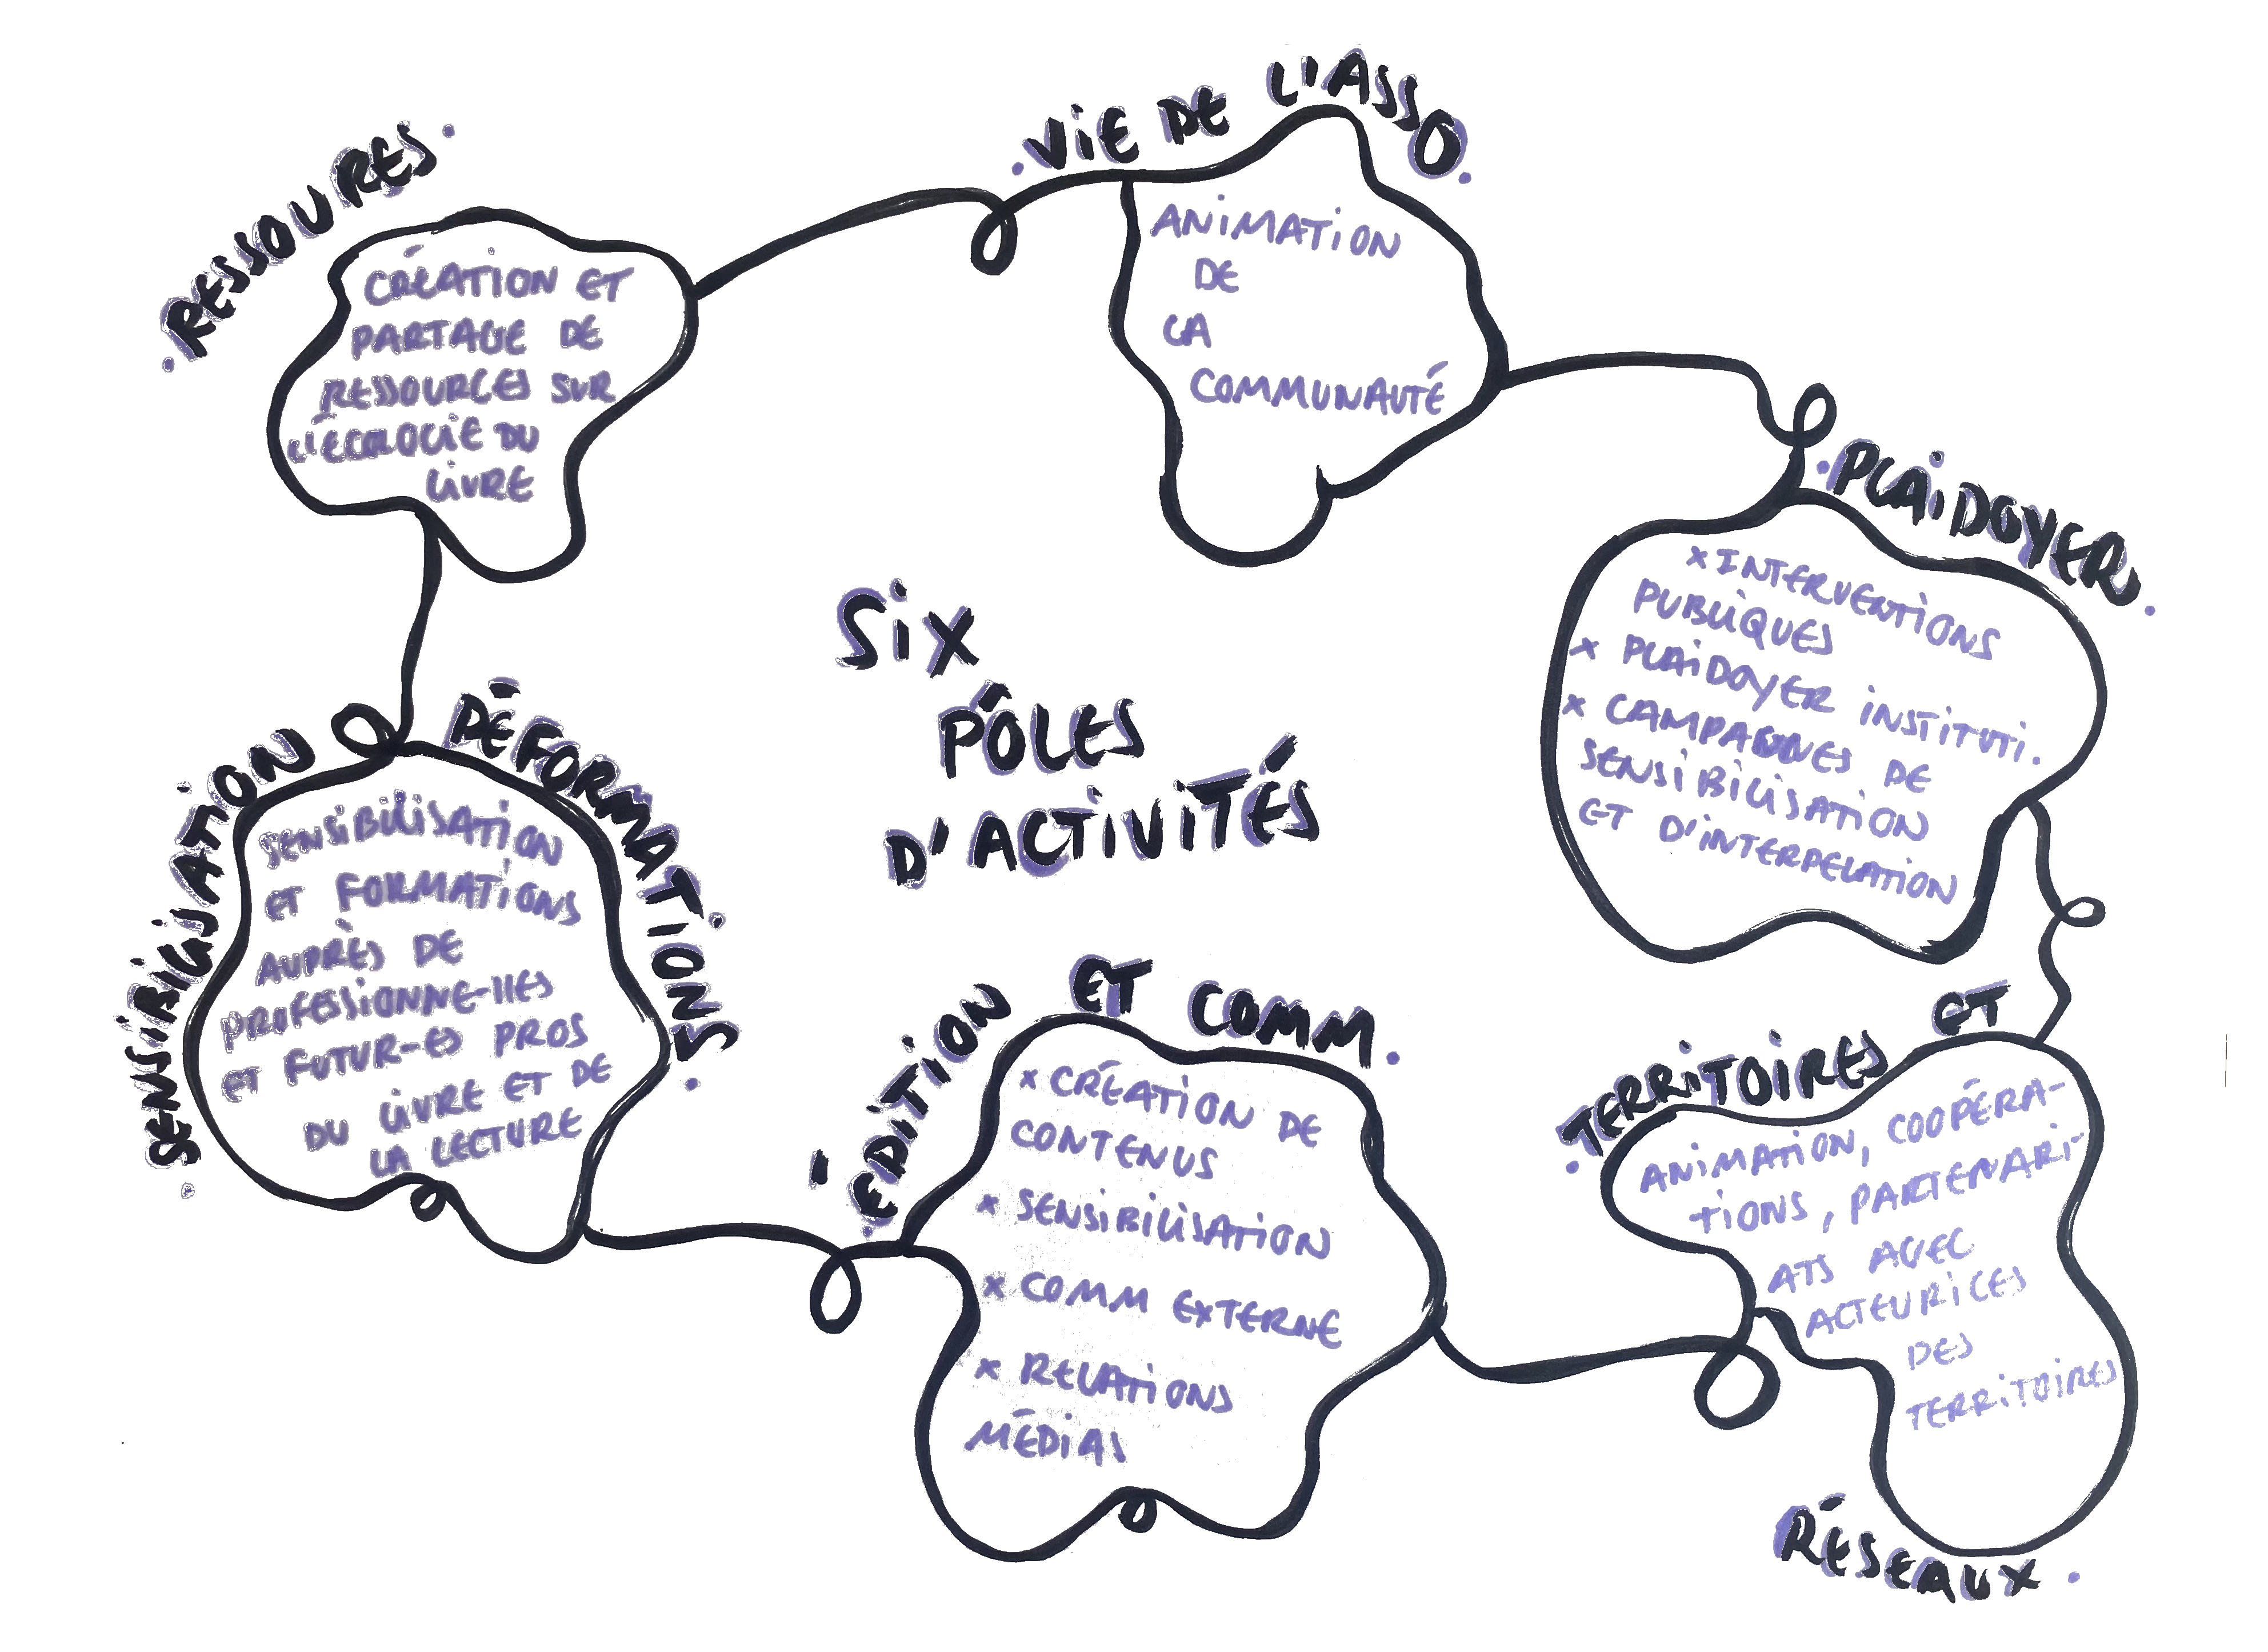 SiX
PÔLES
D'ACTIVITÉS
.RESSOURES.
CRÉATION ET
PARTAGE DE
RESSOURCES SUR
L'ÉCOLOGIE DU
LIVRE
.ViE DE L'ASSO.
ANiMATiON
DE
LA
COMMUNAUTÉ
.PLAiDOYER.
x INTERVENTiONS
PUBLiQUES
x PLAiDOYER iNSTiTUTi.
x CAMPAGNES DE
SENSiBiLiSATiON
ET D'iNTERPELATiON
.TERRiTOiRES ET
ANiMATiON, COOPÉRA-
TiONS, PARTENARi-
ATS AVEC
ACTEURiCES
DES
TERRiTOiRES
RÉSEAUX.
.ÉDiTiON ET COMM.
x CRÉATiON DE
CONTENUS
x SENSiBiLiSATiON
x COMM EXTERNE
x RELATiONS
MÉDiAS
.SENSiBiLiSATiON DÉFORMATiONS.
SENSiBiLiSATiON
ET FORMATiONS
AUPRÈS DE
PROFESSiONNE-llES
ET FUTUR-ES PROS
DU LiVRE ET DE
LA LECTURE